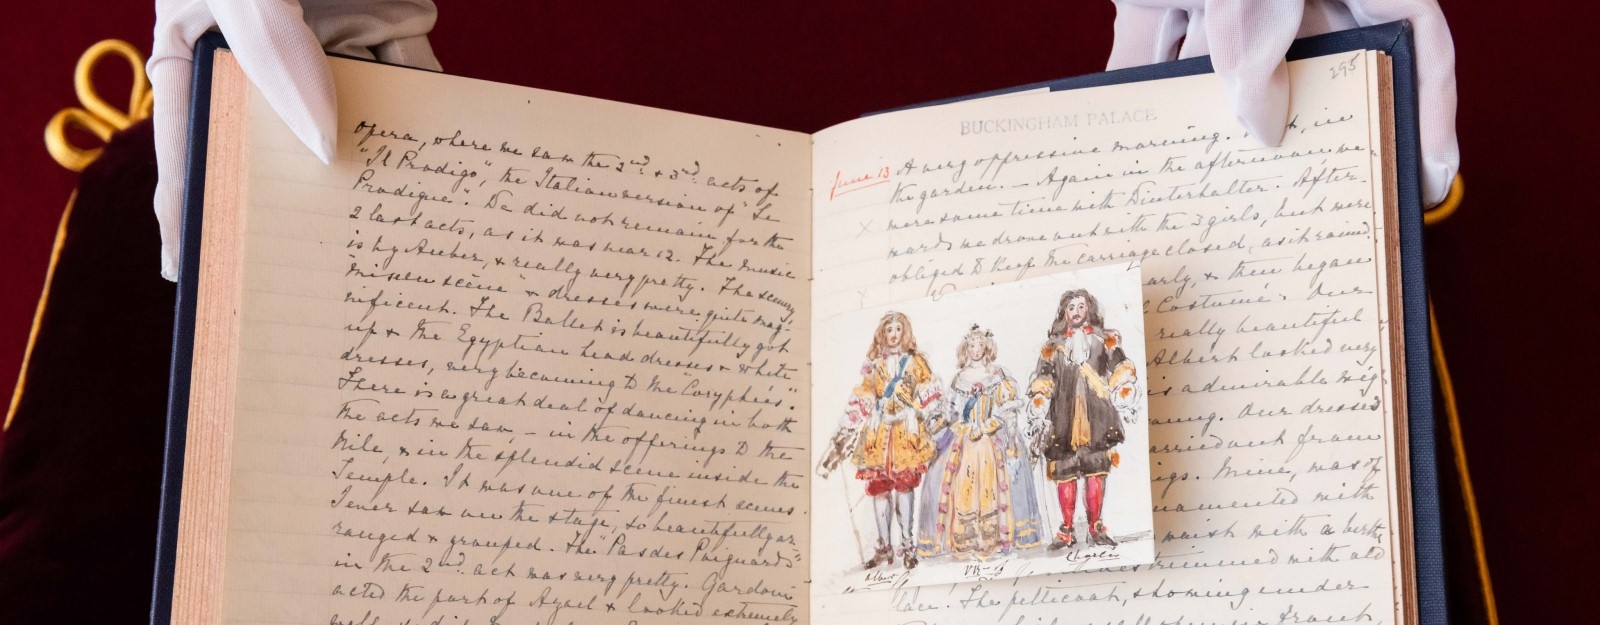 opera, where we saw the 2nd. & 3rd. acts of
"Il Prodigo", the Italian version of "Le
Prodigue". We did not remain for the
2 last acts, as it was near 12. The music
is by Auber, & really very pretty. The scenery,
"mise en scène" & dresses were quite mag-
nificent. The Ballet is beautifully got
up & the Egyptian head dresses & white
dresses, very becoming to the "Coryphées".
There is a great deal of dancing in both
the acts we saw, — in the offerings to the
Nile, & in the splendid scene inside the
Temple. It was one of the finest scenes
I ever saw on the stage, so beautifully ar-
ranged & grouped. The "Pas des Poignards"
in the 2nd. act was very pretty. Gardoni
acted the part of Azael & looked extremely
295
BUCKINGHAM PALACE
June 13 A very oppressive morning. in
the garden. — Again in the afternoon we
were some time with Winterhalter. After-
wards we drove out with the 3 girls, but were
obliged to keep the carriage closed, as it rained.
early, & then began
Costumé. Our
really beautiful
Albert looked very
is admirable wig
Our dresses
carried out from
Mine, was of
ornamented with
waist with a
trimmed with old
lace. The petticoat, showing under
Albert
VR
Charles